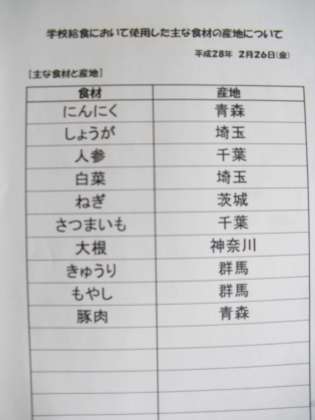 学校給食において使用した主な食材の産地について
平成28年 2月26日(金)
[主な食材と産地]
食材 産地
にんにく 青森
しょうが 埼玉
人参 千葉
白菜 埼玉
ねぎ 茨城
さつまいも 千葉
大根 神奈川
きゅうり 群馬
もやし 群馬
豚肉 青森